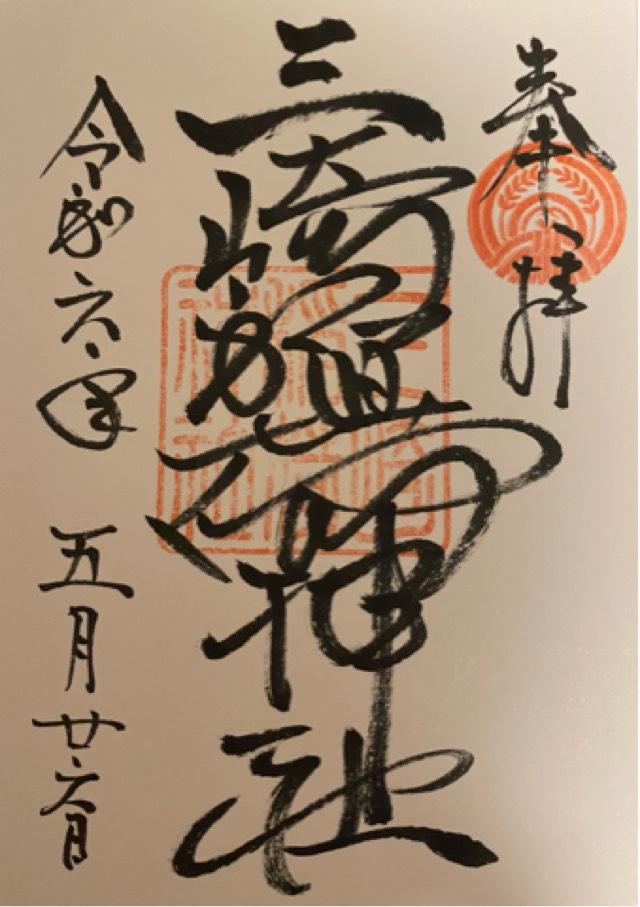 奉拝
三崎稲荷神社
令和六年 五月廿六日